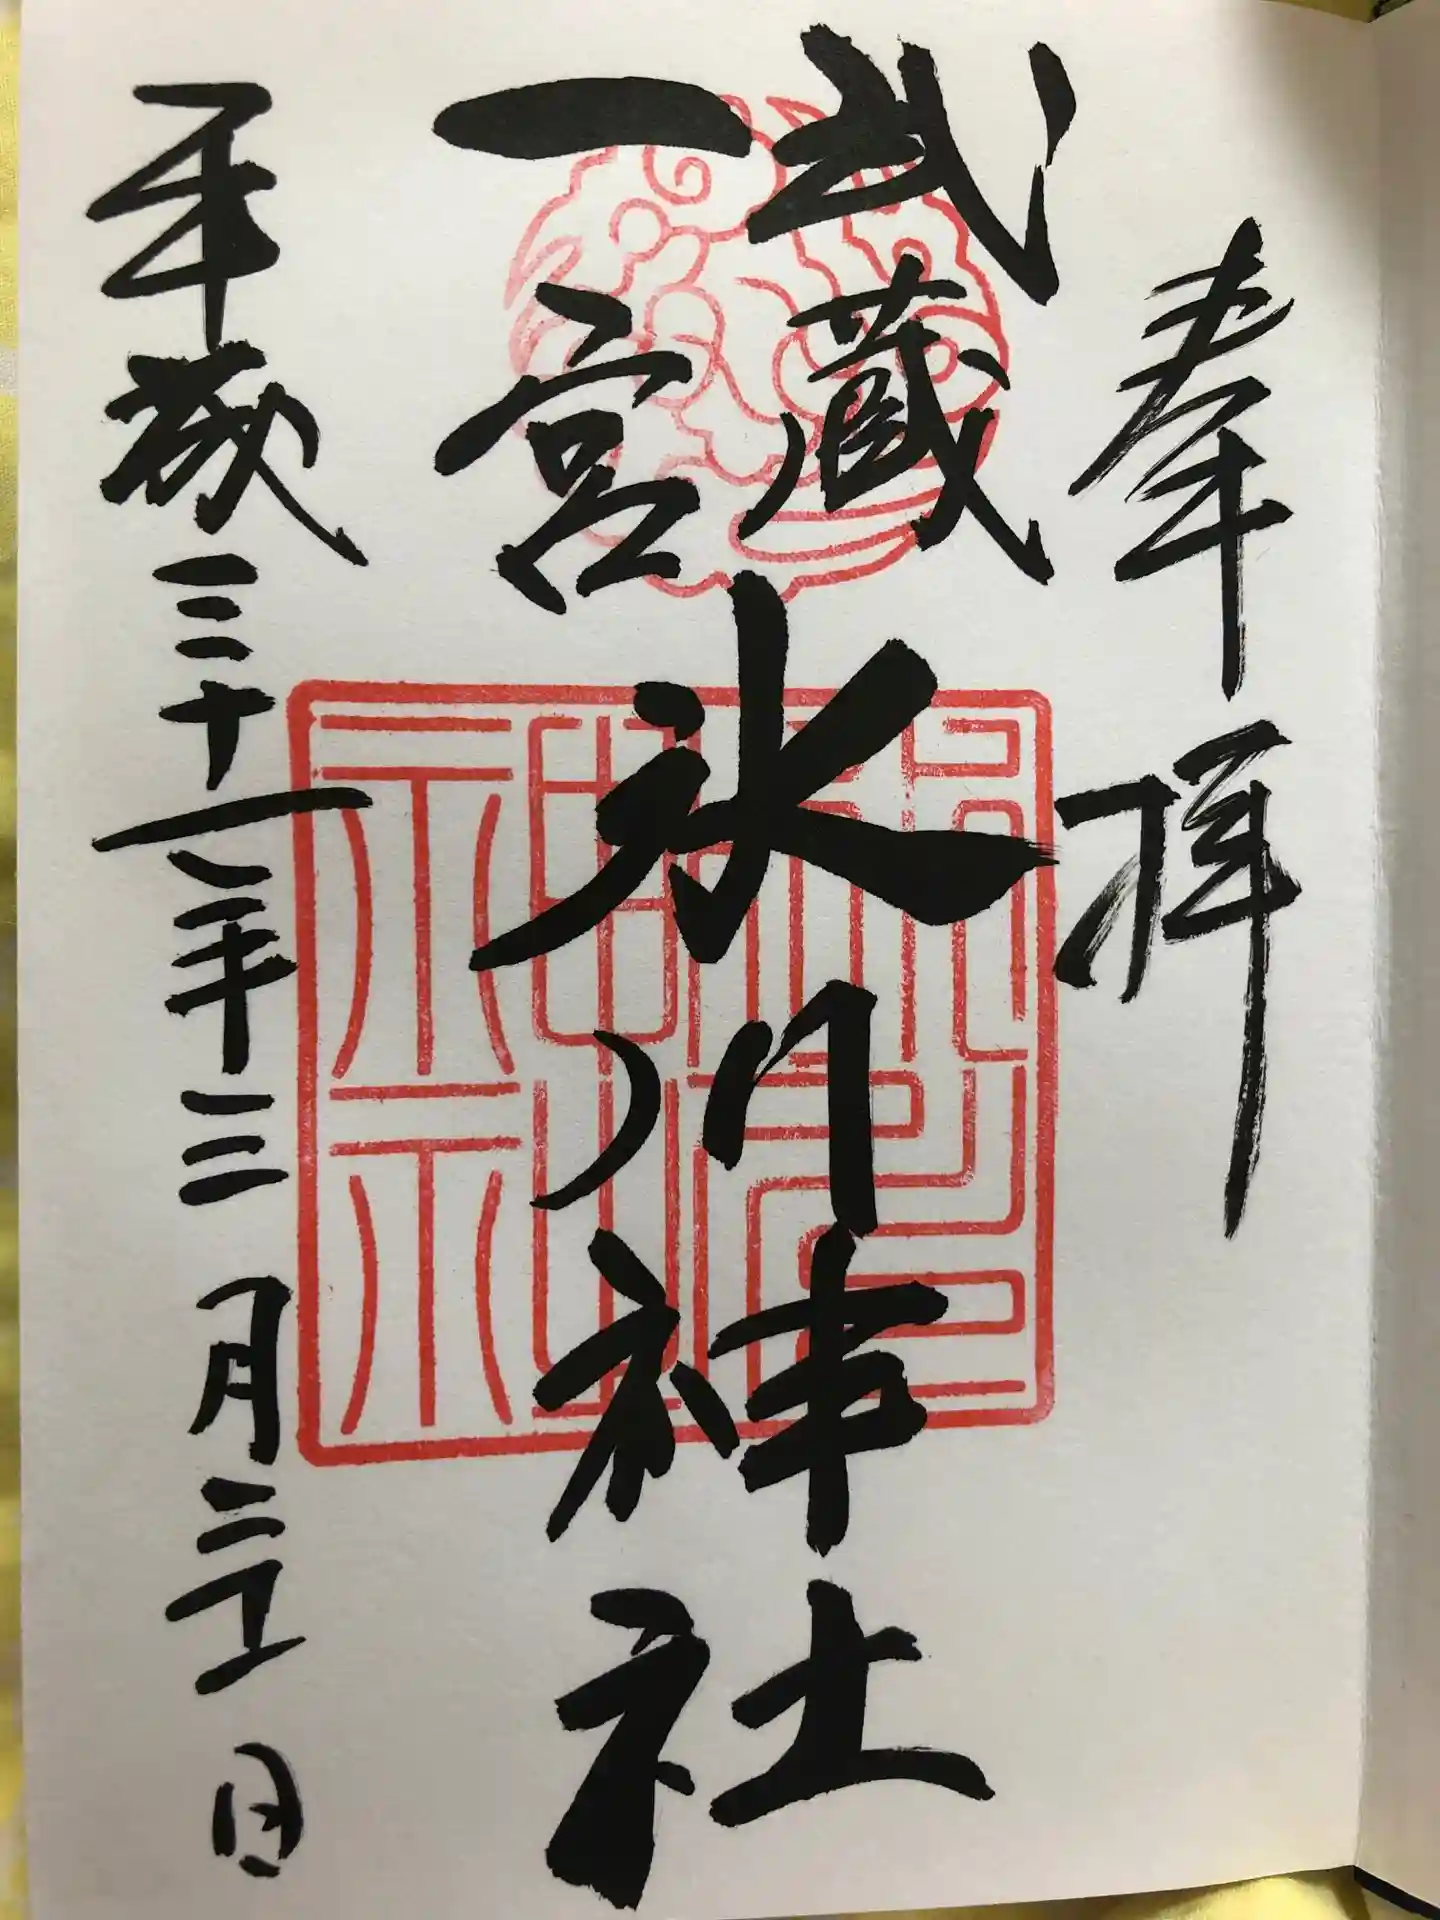 奉拝
武蔵
一宮
氷川神社
平成三十一年三月二 日